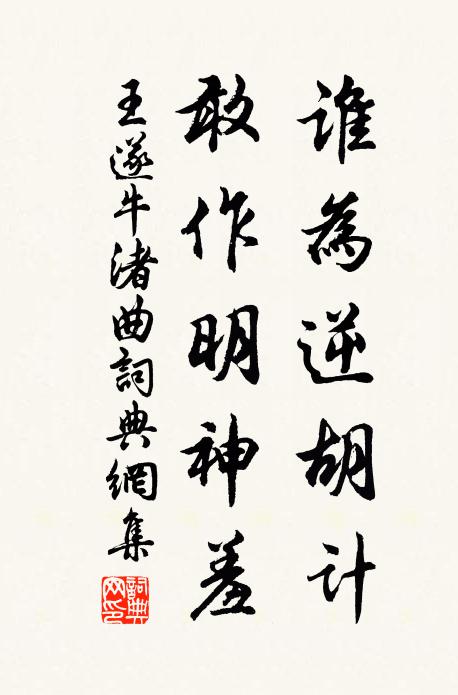 誰為逆胡計
敢作明神羞
王遂牛渚曲詞典網集
詞典網印